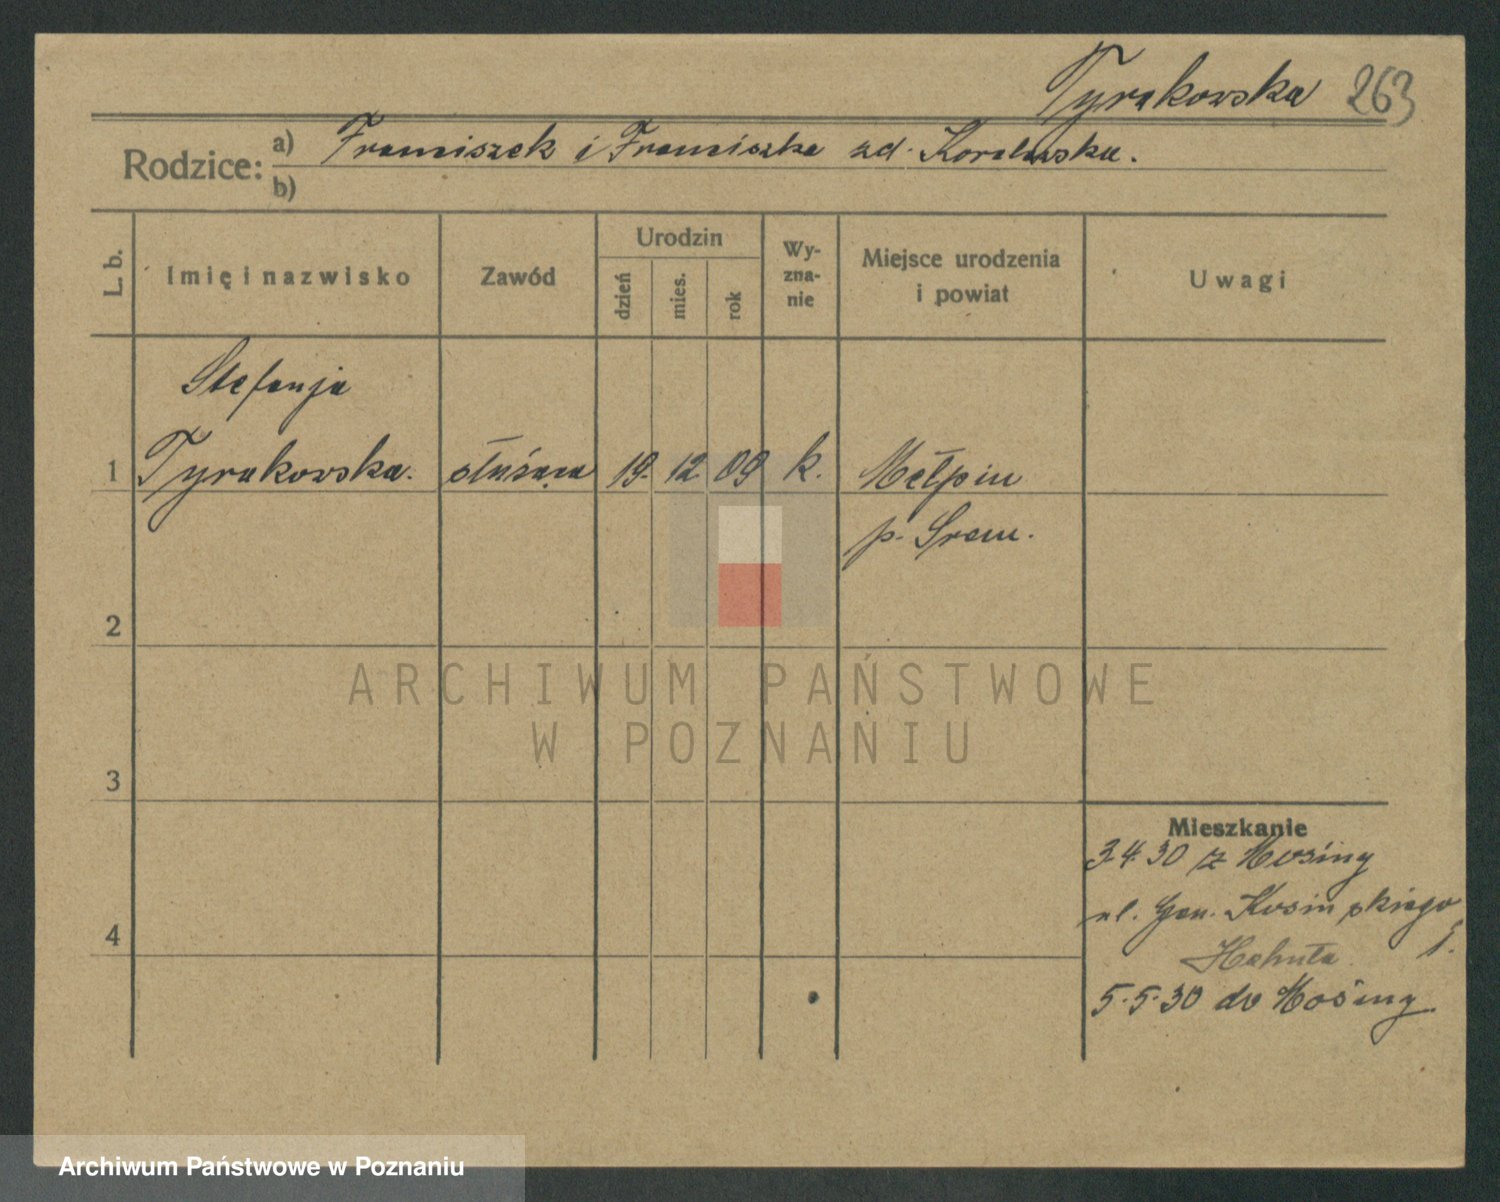 Tyrakowska 263
Rodzice: a) Franciszek i Franciszka zd. Koralewska.
b)
L. b.
Imię i nazwisko
Zawód
Urodzin
dzień
mies.
rok
Wy-
zna-
nie
Miejsce urodzenia
i powiat
Uwagi
Stefanja
1 Tyrakowska. służąca 19. 12 09 k. Mełpin
p. Śrem.
2
3
4
ARCHIWUM PAŃSTWOWE
W POZNANIU
Mieszkanie
3 4 30 z Mosiny
ul. Gen. Kosińskiego
5.5.30 do Mosiny
Archiwum Państwowe w Poznaniu